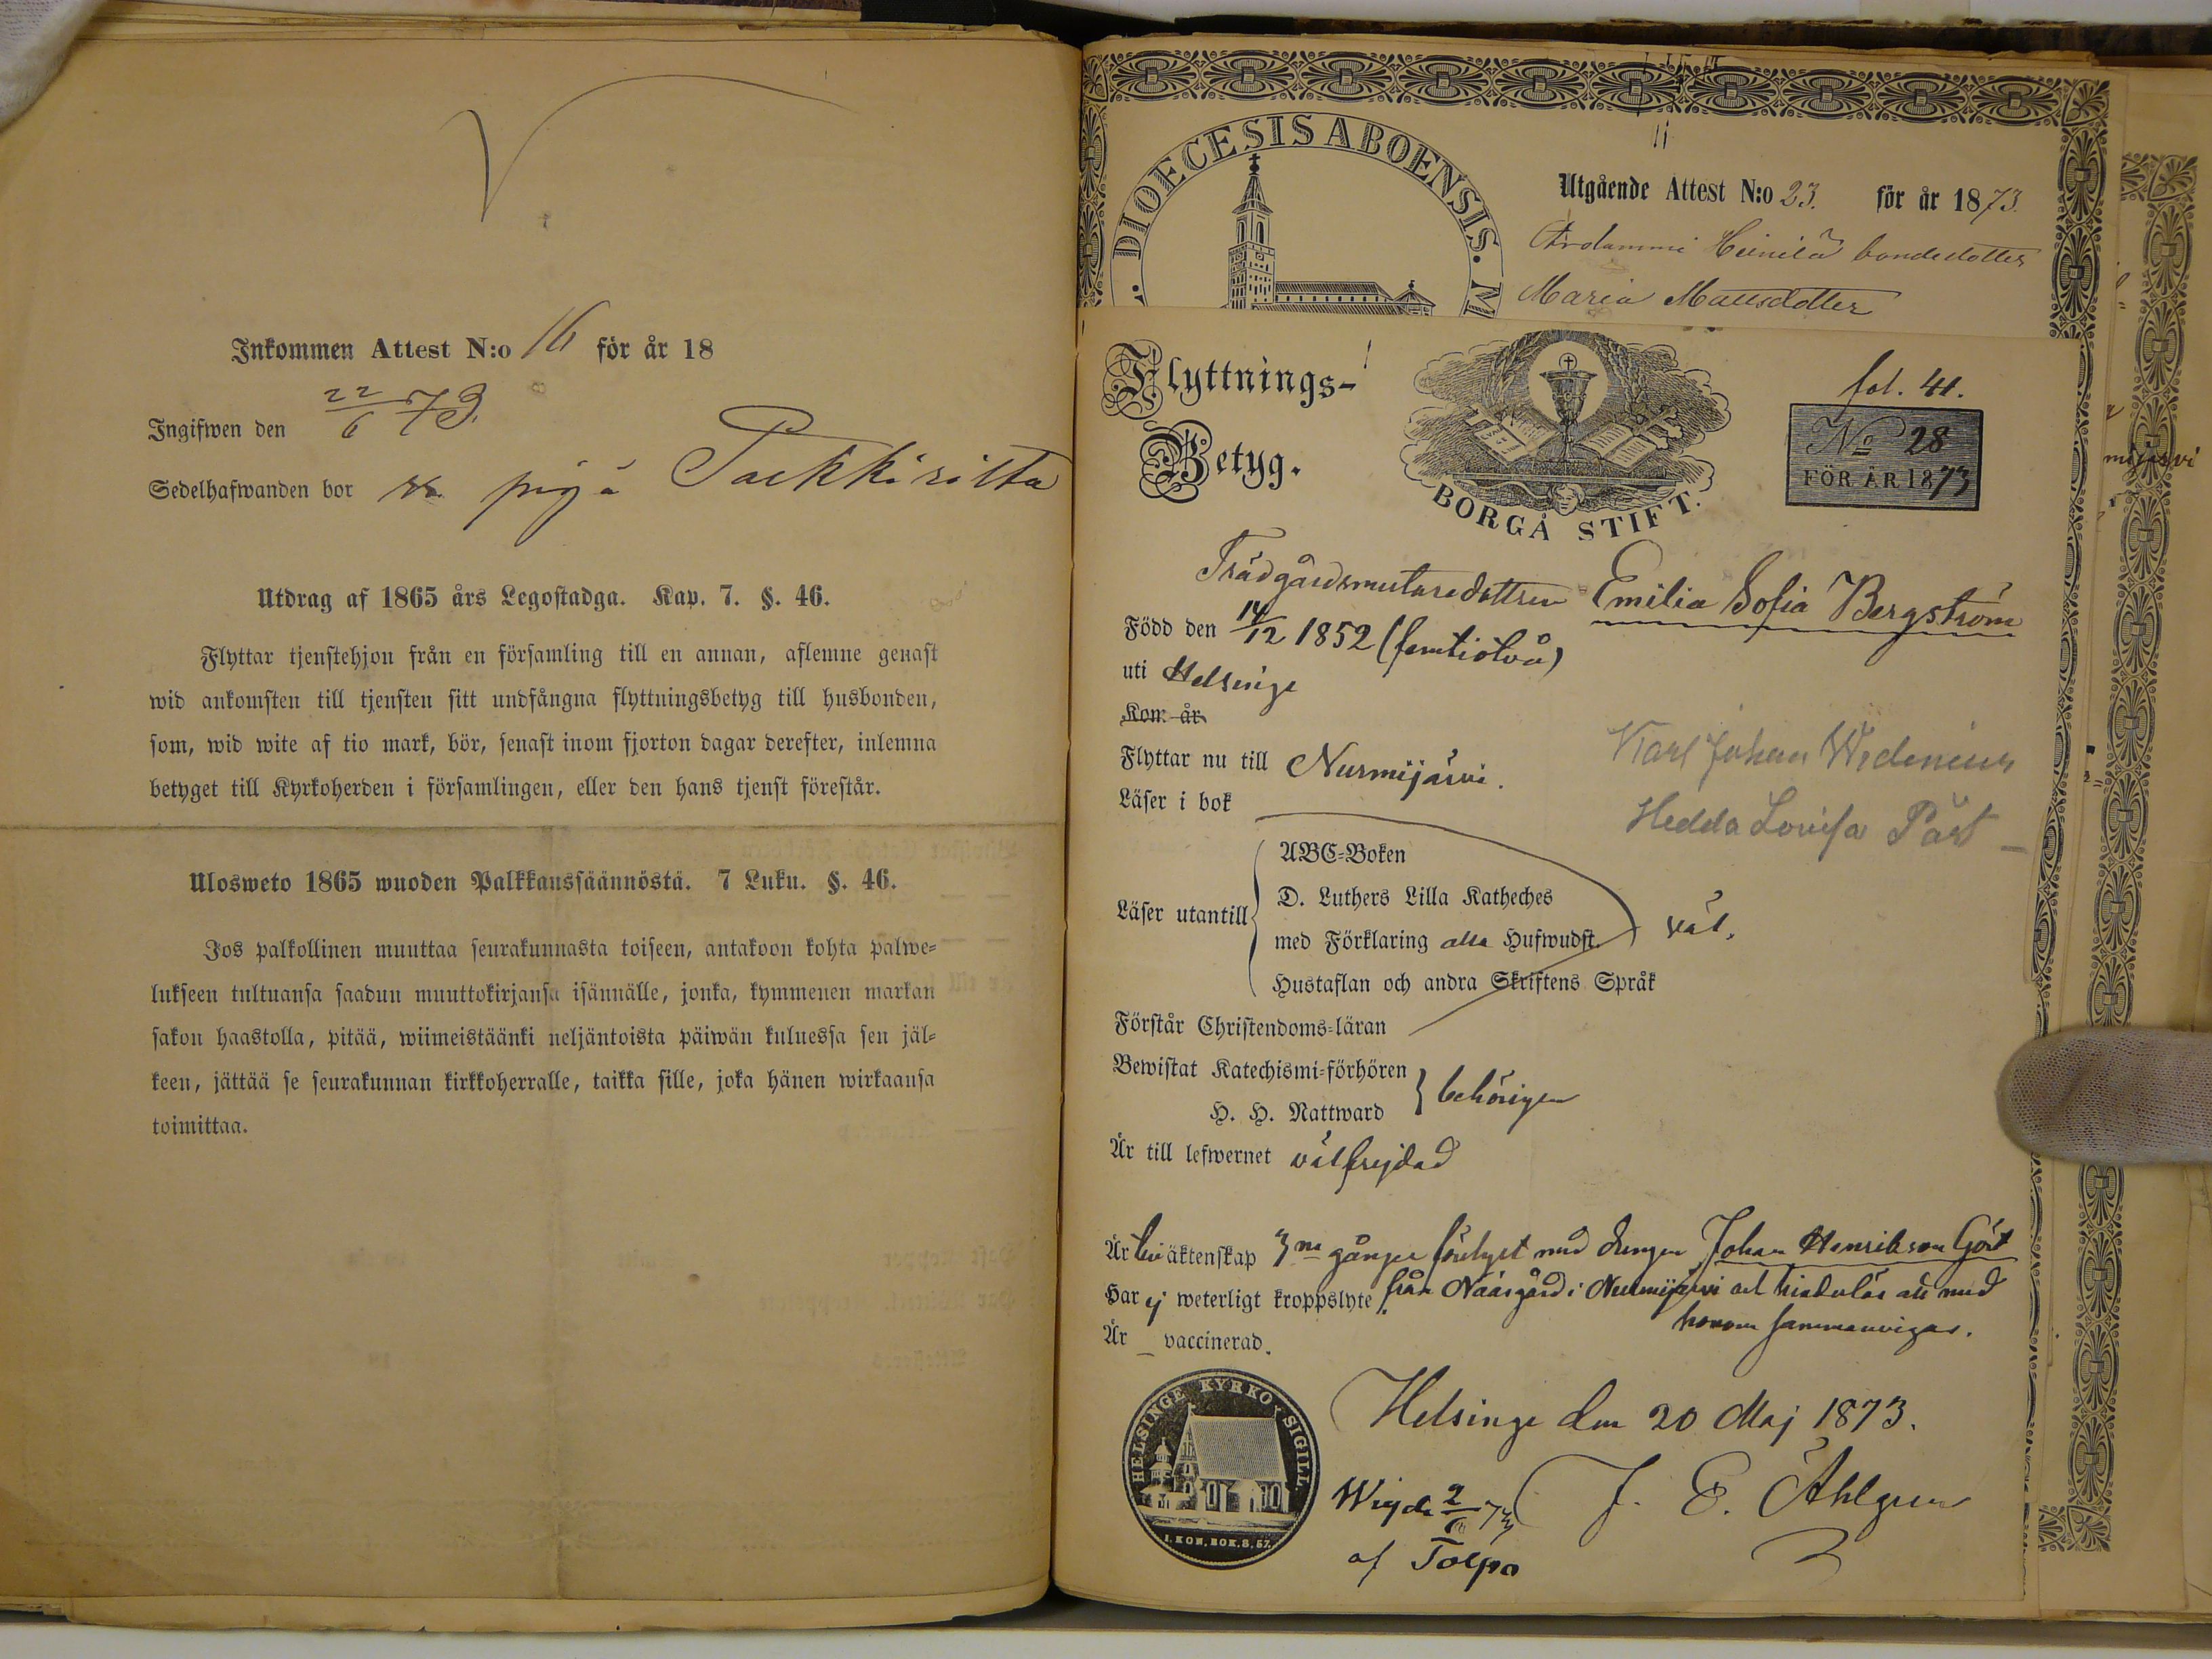 Inkommen Attest N:o 16 för år 18
Ingifwen den 22/6 73.
Sedelhafwanden bor pigå
Utdrag af 1865 års Legostadga. Kap. 7. §. 46.
Flyttar tjenstehjon från en församling till en annan, aflemne genast
wid ankomsten till tjensten sitt undfångna flyttningsbetyg till husbonden,
som, wid wite af tio mark, bör, senast inom fjorton dagar derefter, inlemna
betyget till Kyrkoherden i församlingen, eller den hans tjenst förestår.
Ulosweto 1865 wuoden Palkkaussäännöstä. 7 Luku. §. 46.
Jos palkollinen muuttaa seurakunnasta toiseen, antakoon kohta palwe=
lukseen tultuansa saadun muuttokirjansa isännälle, jonka, kymmenen markan
sakon haastolla, pitää, wiimeistäänki neljäntoista päiwän kuluessa sen jäl=
keen, jättää se seurakunnan kirkkoherralle, taikka sille, joka hänen wirkaansa
toimittaa.
DIOECESIS ABOENSIS. M
Utgående Attest N:o 23. för år 1873.
Heinilä bondedotter
Maria Mattsdotter
Flyttnings-
Betyg.
BORGÅ STIFT.
fol. 41.
No 28
FÖR ÅR 1873
Trädgårdsmästaredottren Emilia Sofia Bergström
Född den 14/12 1852 (femtiotvå)
uti Helsinge
Kom år
Flyttar nu till Nurmijärvi.
Karl Johan Widenius
Läser i bok
Hedda Lovisa
ABC=Boken
D. Luthers Lilla Katheches
Läser utantill
med Förklaring alla Hufwudst. väl.
Hustaflan och andra Skriftens Språk
Förstår Christendoms=läran
Bewistat Katechismi=förhören
H. H. Nattward behörigen
Är till lefwernet välfrejdad
Är äktenskap 3ne gånger med drengen Johan Henriksson Göst
Har ej weterligt kroppslyte från Näsgård i Nurmijärvi och hinderlös att med
honom sammanvigas.
Är vaccinerad.
HELSINGE KYRKO SIGILL.
1. KON. BOK. 8. 57.
Helsinge den 20 Maj 1873.
Wigda 2/6 73
J. E. Åhlgren
af Tolpo